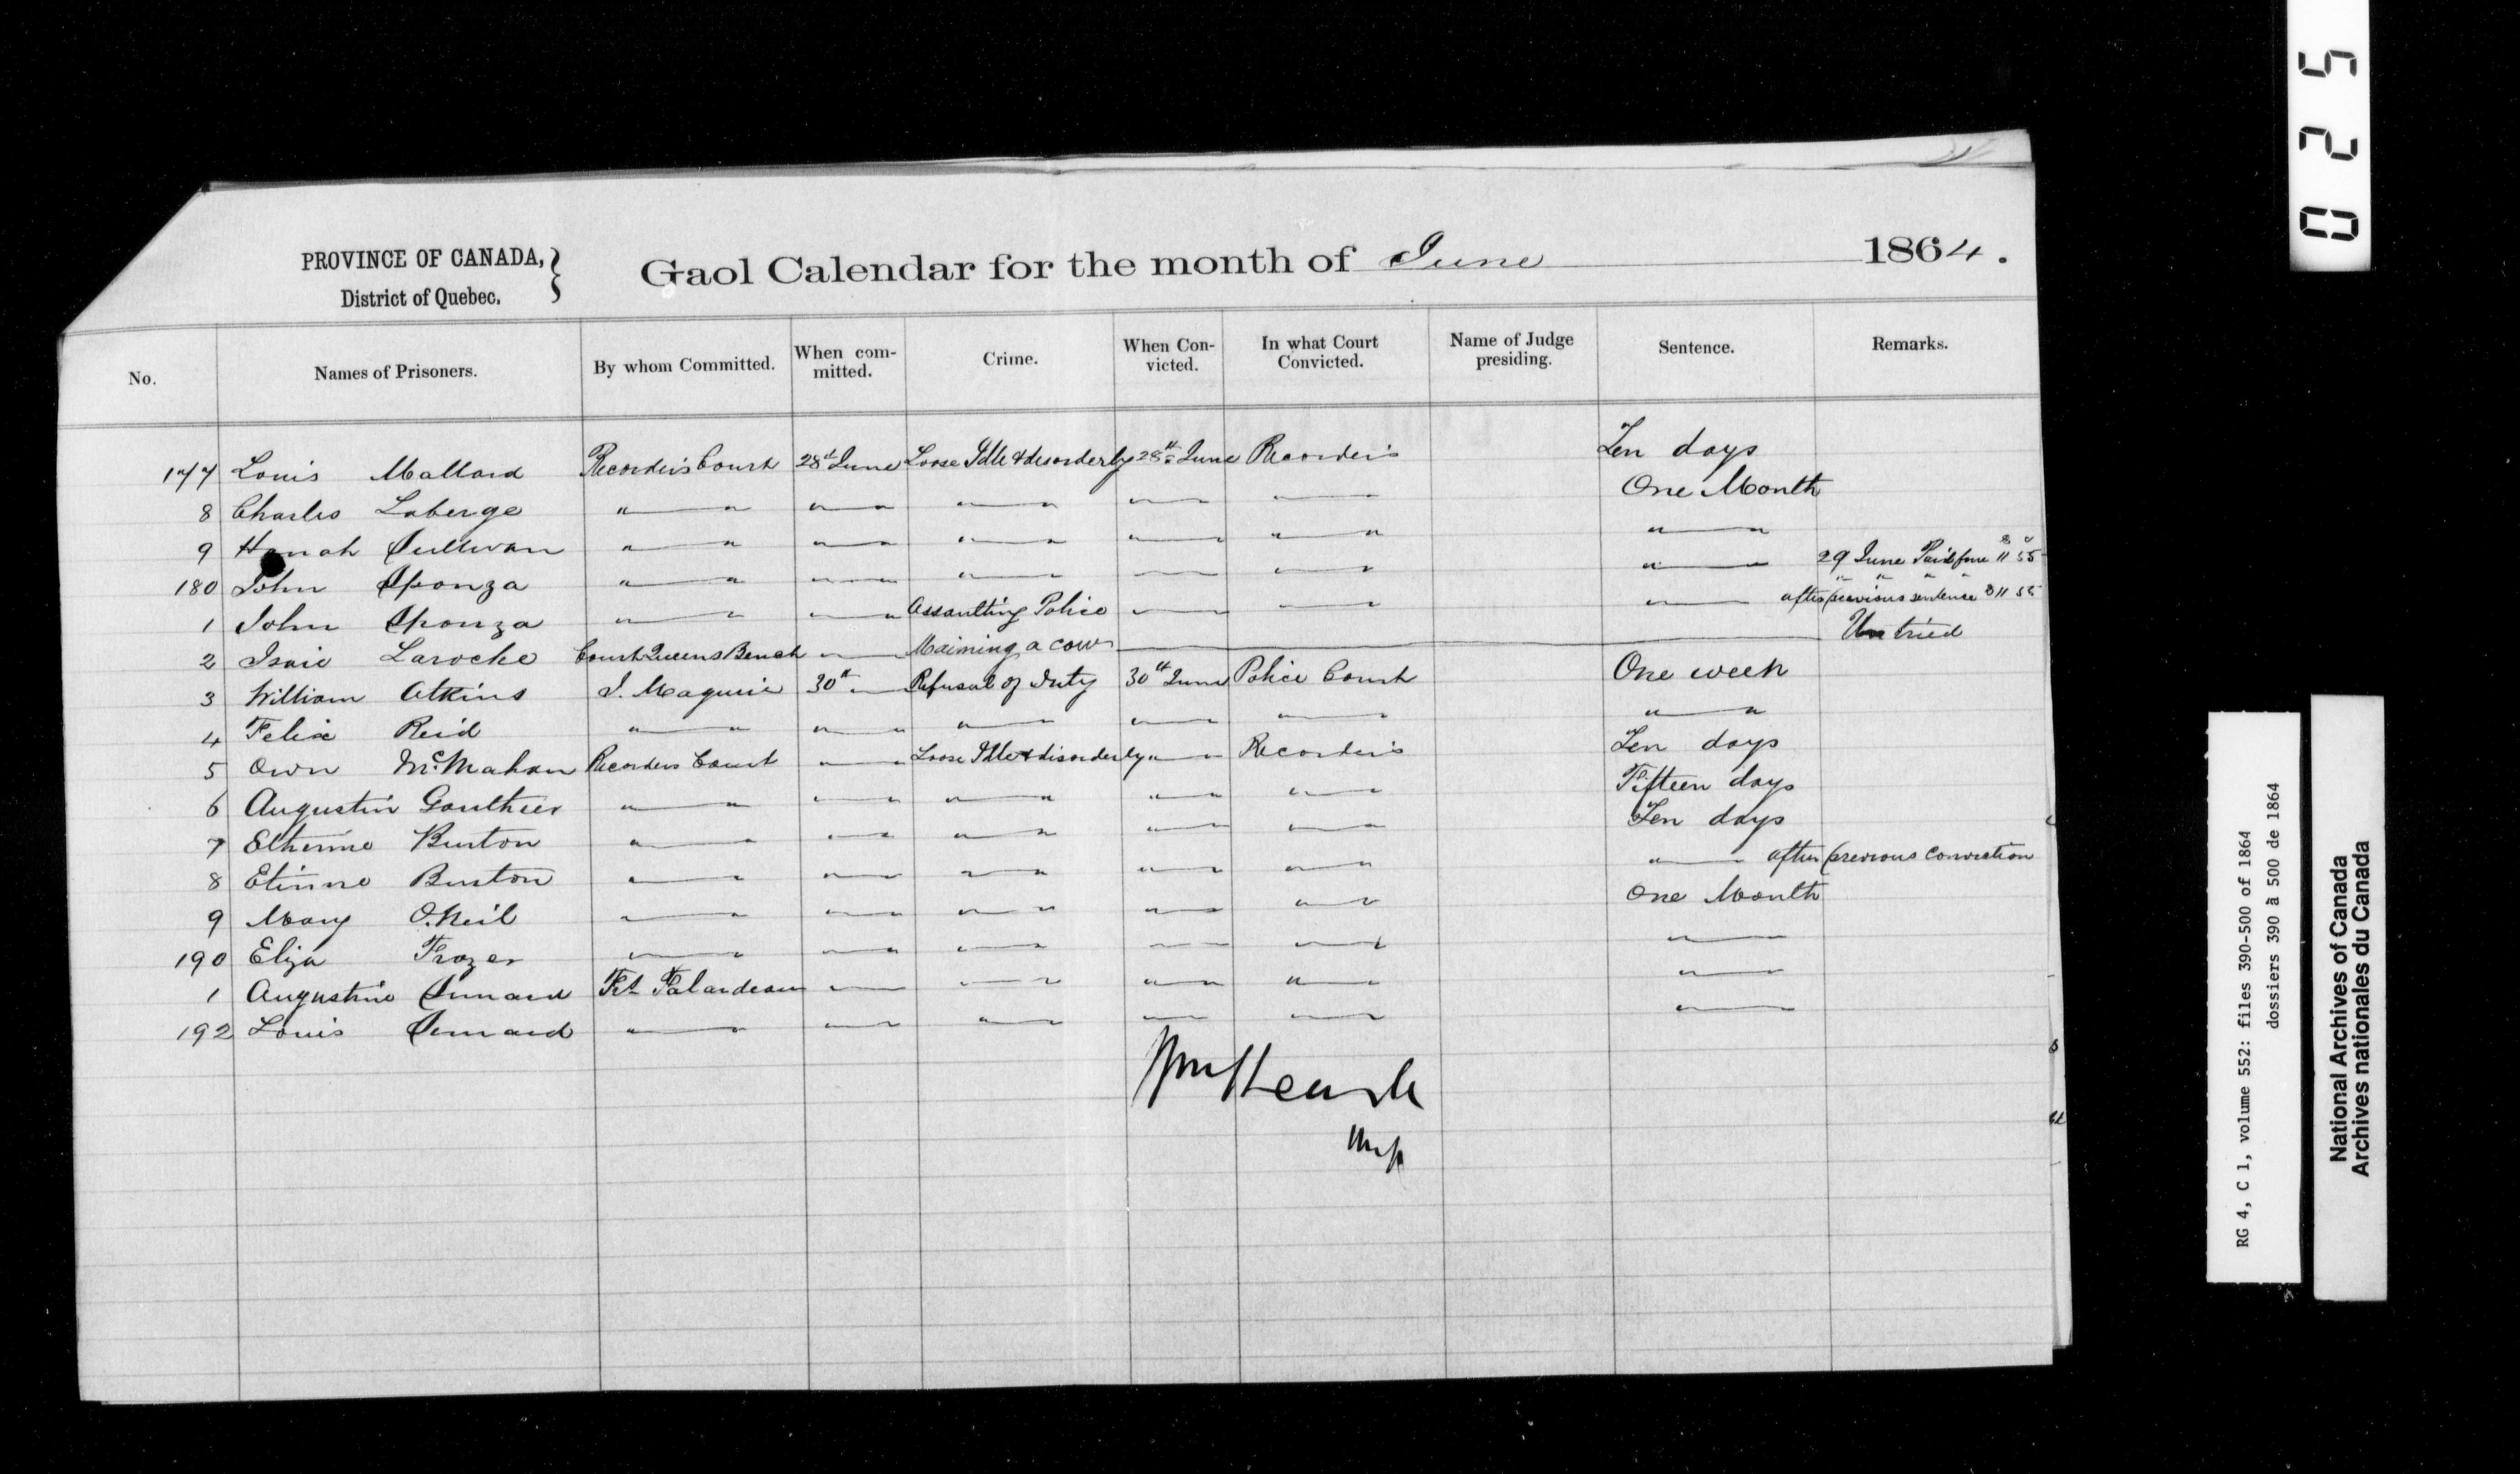 PROVINCE OF CANADA,
District of Quebec.
Gaol Calendar for the month of June 1864.
No. Names of Prisoners. By whom Committed. When com-mitted. Crime. When Con-victed. In what Court Convicted. Name of Judge presiding. Sentence. Remarks.
177 Louis Mallard Recorder's Court 28th June Loose Idle & disorderly 28th June Recorder's Ten days
8 Charles Laberge " " " " " " " " One Month
9 Hanah Sullivan " " " " " " " " " " " "
180 John Sponza " " " " " " " " " " " 29 June Paid fine $11 55
1 John Sponza " " Assaulting Police " " " after previous sentence $11 55
2 Isaie Larocke Court Queens Bench " Maiming a cow Untried
3 William Atkins J. Maguire 30th " Refusal of Duty 30th June Police Court One week
4 Felix Reid " " " " " " " " " " " "
5 Own McMahon Recorders Court " Loose Idle & disorderly " " Recorder's Ten days
6 Augustin Gauthier " " " " " " " " " " Fifteen days
7 Etienne Burton " " " " " " " " " " Ten days
8 Etinne Burton " " " " " " " " " " " after previous conviction
9 Mary O.Neil " " " " " " " " " " One Month
190 Eliza Frazer " " " " " " " " " " " "
1 Augustine Simard Fct Falardeau " " " " " " " "
192 Louis Simard " " " " " " " " " " "
025
RG 4, C 1, volume 552: files 390-500 of 1864
dossiers 390 à 500 de 1864
National Archives of Canada
Archives nationales du Canada